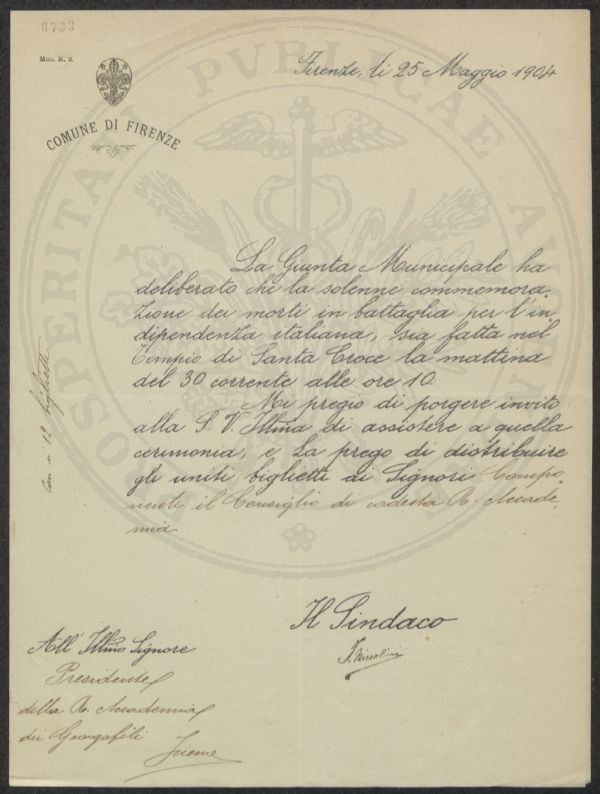 6733
Mod. N. 2.
COMUNE DI FIRENZE
Firenze, li 25 Maggio 1904
PROSPERITATI PVBLICAE AVGENDAE
La Giunta Municipale ha
deliberato che la solenne commemora-
zione dei morti in battaglia per l'in-
dipendenza italiana, sia fatta nel
Tempio di Santa Croce la mattina
del 30 corrente alle ore 10.
Mi pregio di porgere invito
alla S. V. Illma di assistere a quella
cerimonia, e La prego di distribuire
gli uniti biglietti ai Signori Compo-
nenti il Consiglio di codesta R. Accade-
mia
Con n. 12 biglietti
Il Sindaco
All' Illmo Signore
Presidente
della R. Accademia
dei Georgofili
Firenze